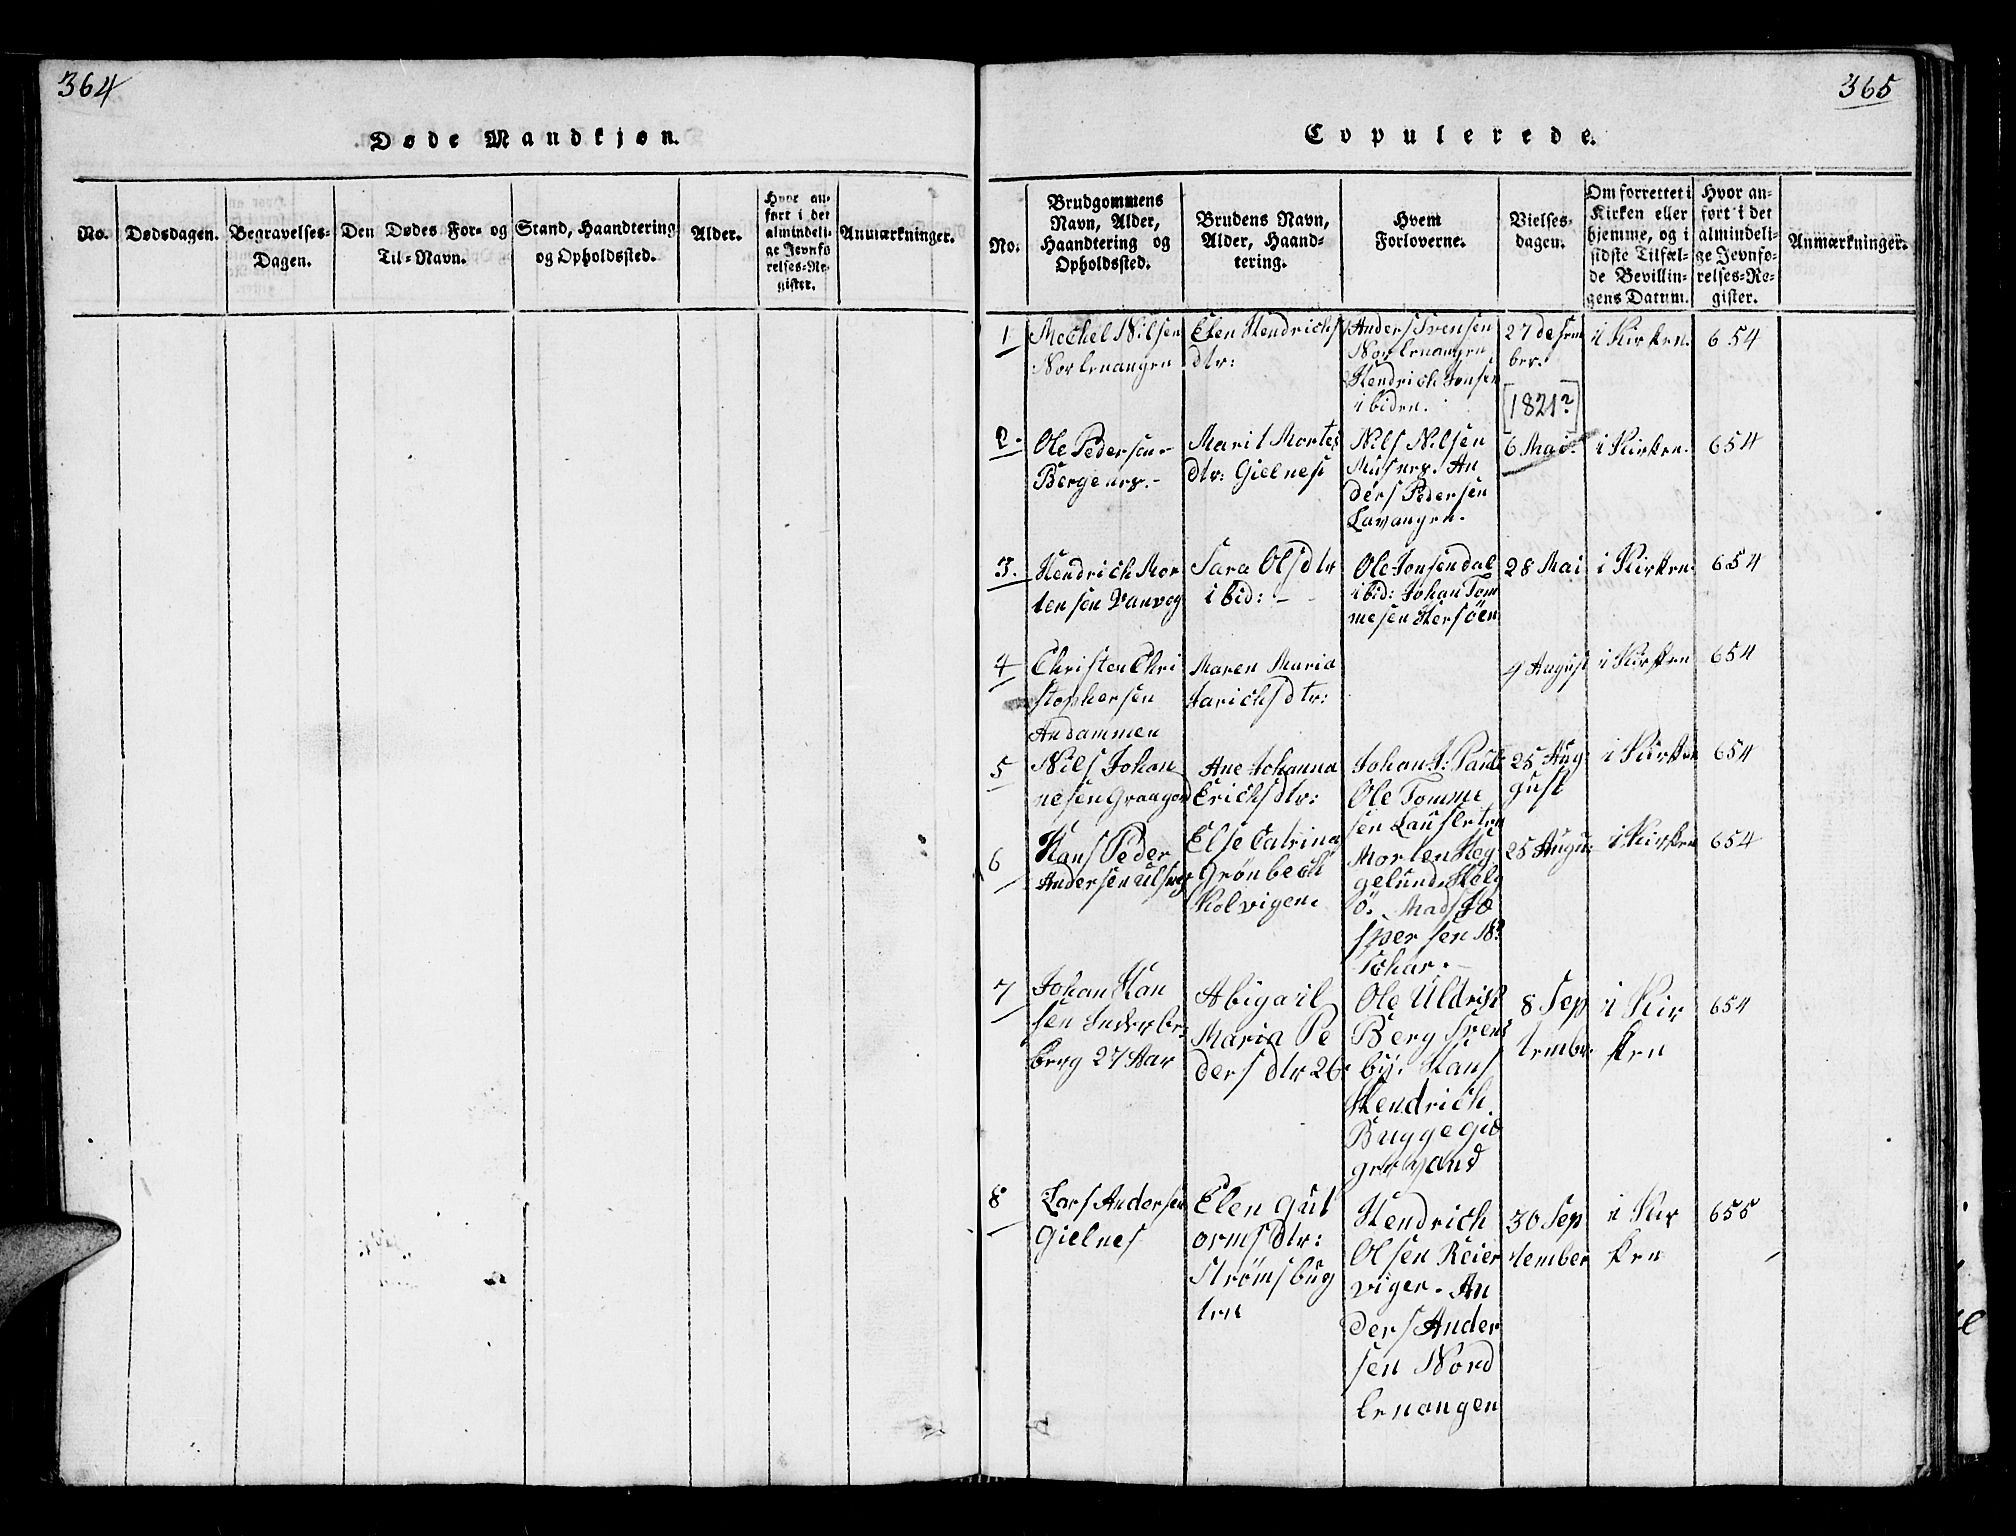 364
Døde Mandkjøn.
No.
Dødsdagen.
Begravelses-
Dagen.
Den Dødes For- og
Til-Navn.
Stand, Haandtering
og Opholdssted.
Alder.
Hvor an-
ført i det
almindeli-
ge Jevnfø
relses-Re-
gister.
Anmærkninger.
365
Copulerede.
No.
Brudgommens
Navn, Alder,
Haandtering og
Opholdssted.
Brudens Navn,
Alder, Haand-
tering.
Hvem
Forloverne.
Vielses-
dagen.
Om forrettet i
Kirken eller
hjemme, og i
sidste Tilfæl-
de Bevillin-
gens Datum.
Hvor an-
ført i det
almindeli-
ge Jevnfø-
relses-Re-
gister.
Anmærkninger.
1
Mechel Nilsen
Nor Lenangen
Elen Hendrichs
dtr:
Anders Svensen
Nor Lenangen
Hendrich Jonsen
ibiden.
27 desem
ber.
[1821?]
i Kirken.
654
2.
Ole Pedersen
Bergenes.
Marit Mortes
dtr: Gielnes
Nils Nilsen
An
ders Pedersen
Lavangen.
6 Mai.
i Kirken.
654
3.
Hendrich Mor
tensen Vanvog
Sara Olsdtr
ibid:
Ole Jonsendal
ibid: Johan Tom
mesen Stersöen
28 Mai
i Kirken
654
4
Christen Chri
stophersen
Andammen
Maren Maria
Jarichsdtr:
4 August
i Kirken
654
5
Nils Johan
nesen
Ane Johanna
Erichsdtr:
Johan J:
Ole Tomme
sen
25 Aug
gust
i Kirken
654
6
Hans Peder
Andersen
Else Catrina
Grönbech
Kolvigen.
Morten Heg
gelund
ö. Mads Je
spersen
25 Augu:
i Kirken
654
7
Johan Han
sen
berg 27 Aar
Abigail
Maria Pe
dersdtr 26
Ole Uldrich
Berg Svens
by. Hans
Hendrich
Bugge Giö
vand
8 Sep
tembr.
i Kir
ken
654
8
Lars Andersen
Gielnes
Elen Gut
ormsdtr:
Strømsbug
ten
Hendrich
Olsen Reier
vigen. An
ders Ander
sen Nord
Lenangen
30 Sep
tember
i Kir
ken
655